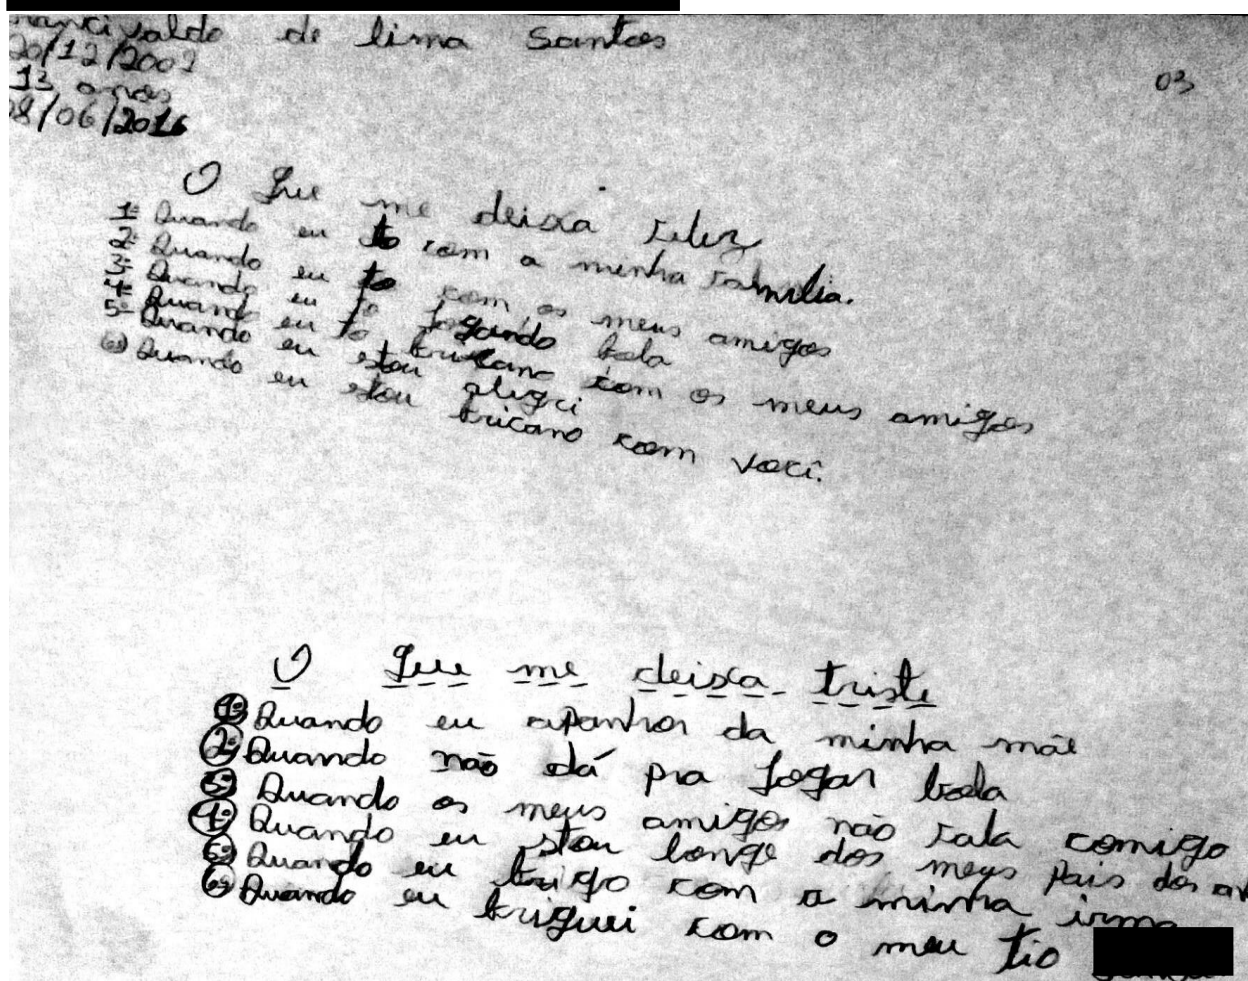 de lima Santos
20/12/2002
03
13 anos
08/06/2016
O Que me deixa Feliz
1º Quando eu to com a minha Familia.
2º Quando eu to com os meus amigos
3º Quando eu to Jogando bola
4º Quando eu to bricano com os meus amigos
5º Quando eu estou alegri
6º Quando eu estou bricano com você.
O Que me deixa triste
1º Quando eu apanhor da minha mãe
2º Quando não dá pra Jogar bola
3º Quando os meus amigos não Fala comigo
4º Quando eu stou longe dos meus Pais dos
5º Quando eu brigo com a minha irma
6º Quando eu briguei com o meu tio